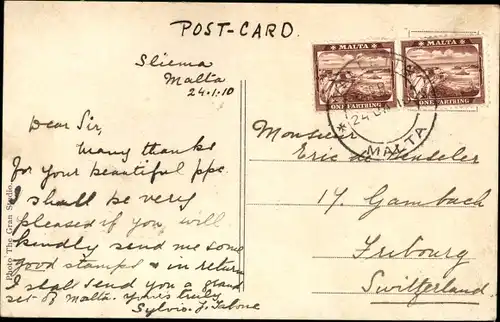 POST-CARD.
Sliema
Malta
24.1.10
Dear Sir,
Many thanks
for your beautiful ppc.
I shall be very
pleased if you will
kindly send me some
good stamped & in return
I shall send you a grand
set of Malta. Yours truly
Sylvio. J. Tabone
Photo The Gran Studio.
MALTA
ONE FARTHING
MALTA
ONE FARTHING
MALTA
Monsieur
Eric de
17. Gambach
Fribourg
Switzerland.